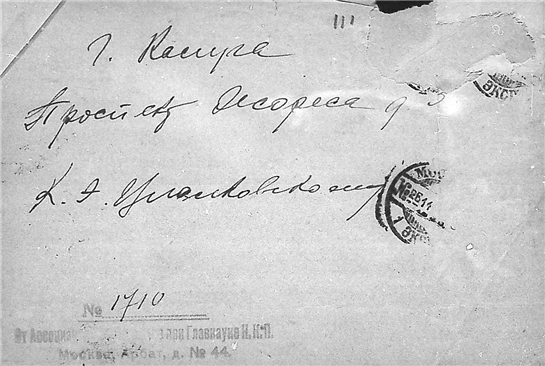 111
г. Калуга
Проспект Жореса д. 3
К. Э. Циолковскому
МОС
25.11
ЭКСП
ЭКСП
№ 1710
От Ассоциа при Главнауке Н.К.П.
Москва, Арбат, д. № 44.